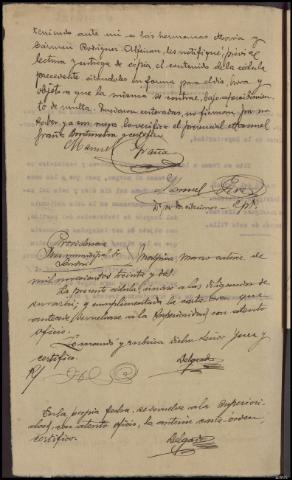 teniendo ante mi a las hermanas Maria y
Carmen Rodriguez Alfonsin, les notifiqué, previa
lectura y entrega de copia el contenido de la cédula
precedente citandolas en forma para el dia, hora y
objeto que la misma se contrae, bajo apercibimien
to de multa. Quedaron enteradas, no firman por no
saber, y a su ruego lo verifica el presencial Manuel
Graña
Manuel Graña
Manuel
Providencia
Juez municipal Sr.
Marzo catorce de
mil novecientos treinta y dos.
La presente cédula únase a las diligencias de
su razón; y cumplimentada la carta orden que
antecede devuelvase a la Superioridad con atento
oficio.
Lo mandó y rubrica dicho Señor Juez y
certifico.
Delgado
En la propia fecha, se devuelve a la Superiori
dad, con atento oficio, la anterior carta-orden,
certifico.
Delgado